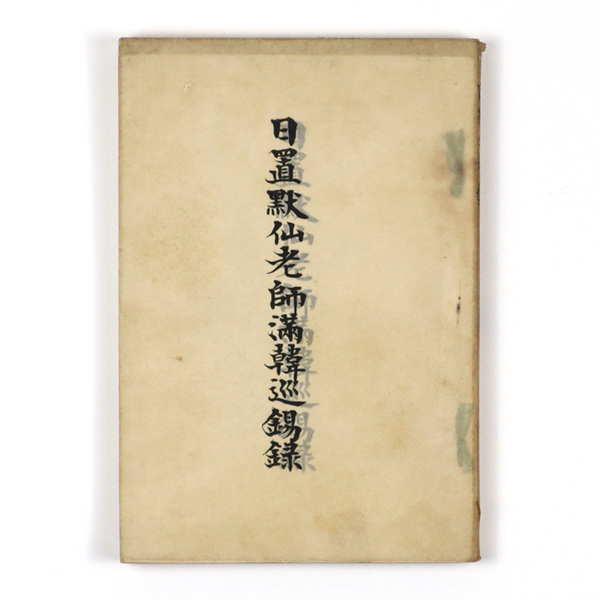 日置默仙老師満韓巡錫録